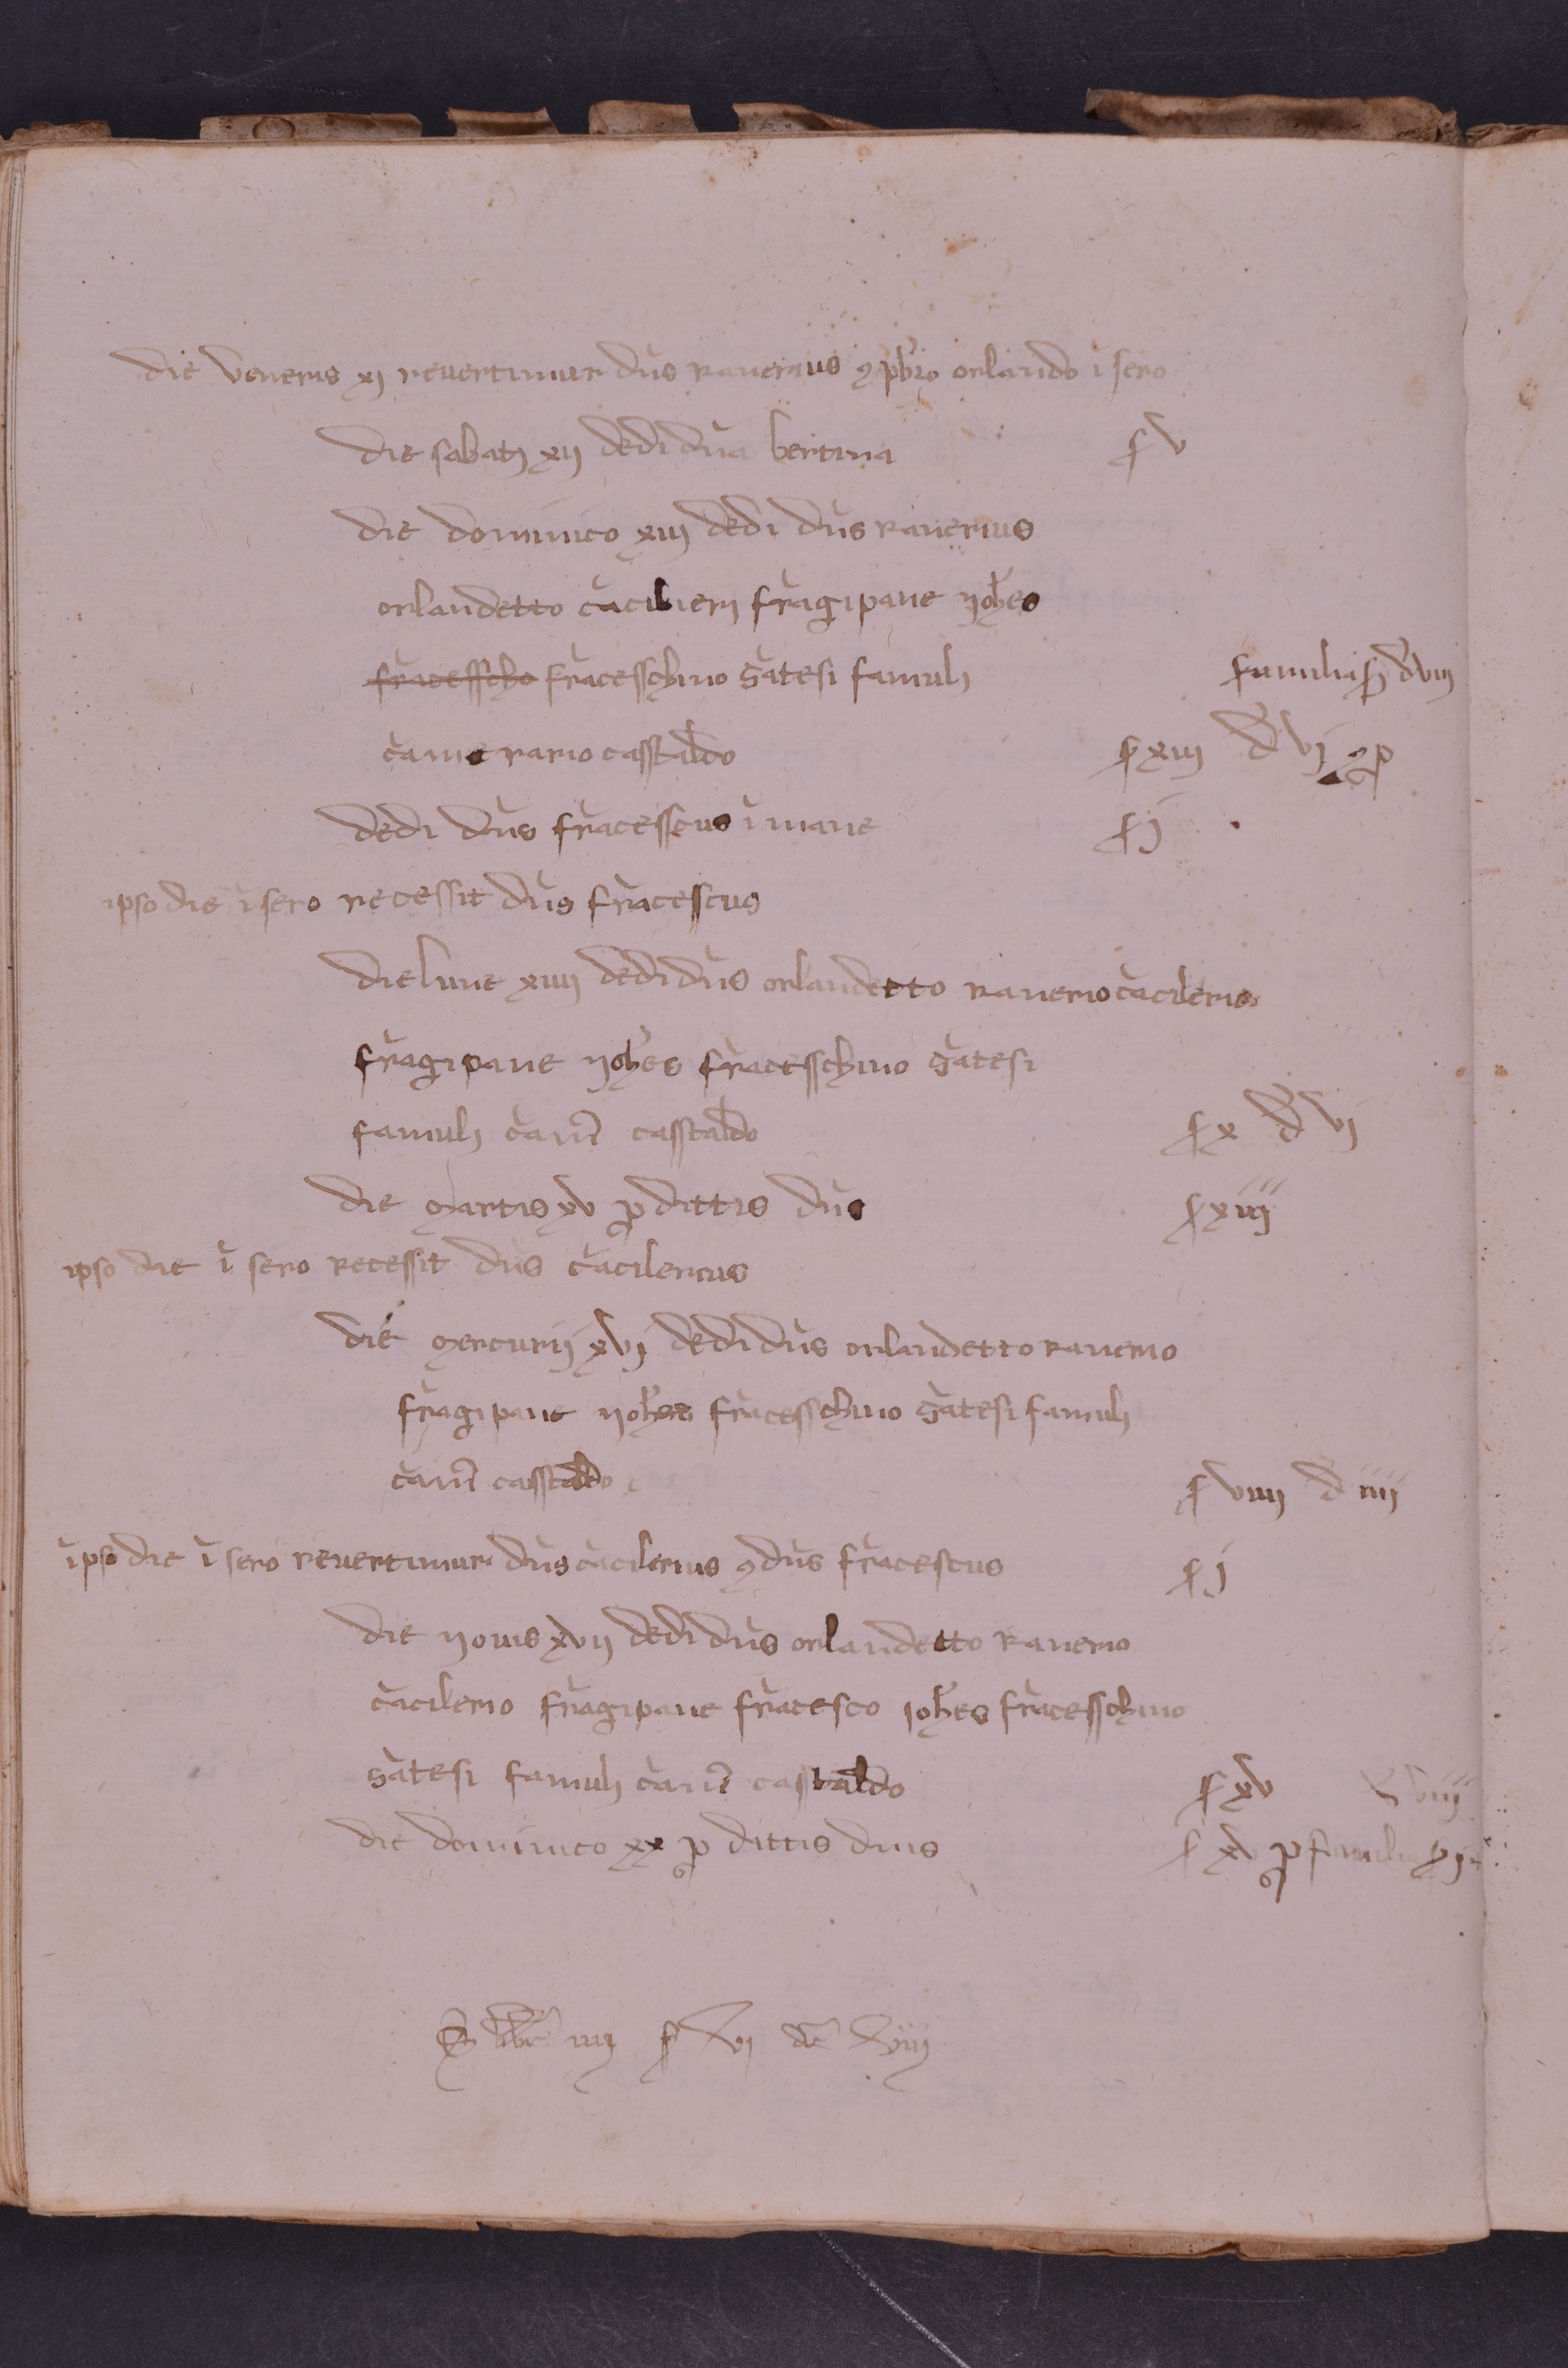 die veneris xj revertimur dn̄s ranerius 9 pb̄ro orlando ī sero
die sabatj xij dedi dn̄a bertina ſ v
die dominico xiij dedi dn̄s ranerius
orlandetto c̄acilierj fr̄agipane yoh̄es
fr̄acesscho fr̄acesschino ḡatesi famulj familia ſ j d viij
c̄amerario casstaldo ſ xiij d vj
dedi dn̄s fr̄acesscus ī mane ſ j
ipso die ī sero recessit dn̄s fr̄acescus
die lune xiiij dedi dn̄s orlandetto ranerio c̄acilerio
fr̄agipane yoh̄es fr̄acesschino ḡatesi
famulj c̄am̄ casstaldo ſ x d vj
die martis xv p dittis dn̄s ſ xiiij
ipso die ī sero recessit dn̄s c̄acilerius
die mercurij xvj dedi dn̄s orlandetto ranerio
fr̄agipane yoh̄es fr̄acesschino ḡatesi famulj
c̄am̄ casstaldo ſ viiij d iiij
ipso die ī sero revertimur dn̄s c̄acilerius 9 dn̄s fr̄acescus ſ j
die yovis xvij dedi dn̄s orlandetto ranerio
c̄acilerio fr̄agipane fr̄acesco ioh̄es fr̄acesschino
ḡatesi famulj c̄am̄ casstaldo ſ xv viij
die dominico xx p dittis dnis ſ xv p familia
lbr̄ iiij ſ vj d viij